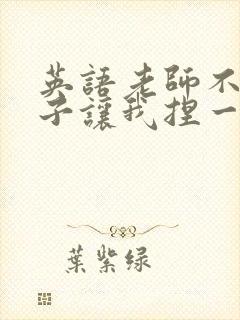 英語老師不
子讓我捏一
葉紫绿